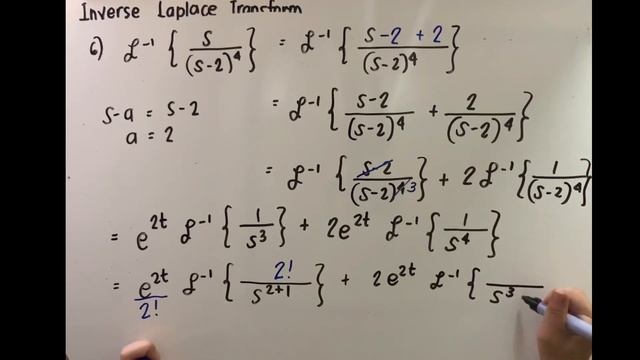 Inverse Laplace Transform
6) ℒ⁻¹ { s/(s-2)⁴ } = ℒ⁻¹ { (s-2 + 2)/(s-2)⁴ }
s-a = s-2 = ℒ⁻¹ { (s-2)/(s-2)⁴ + 2/(s-2)⁴ }
a = 2
= ℒ⁻¹ { s-2/(s-2)⁴ ³ } + 2 ℒ⁻¹ { 1/(s-2)⁴ }
= e²ᵗ ℒ⁻¹ { 1/s³ } + 2e²ᵗ ℒ⁻¹ { 1/s⁴ }
= e²ᵗ/2! ℒ⁻¹ { 2!/s²⁺¹ } + 2e²ᵗ ℒ⁻¹ { /s³